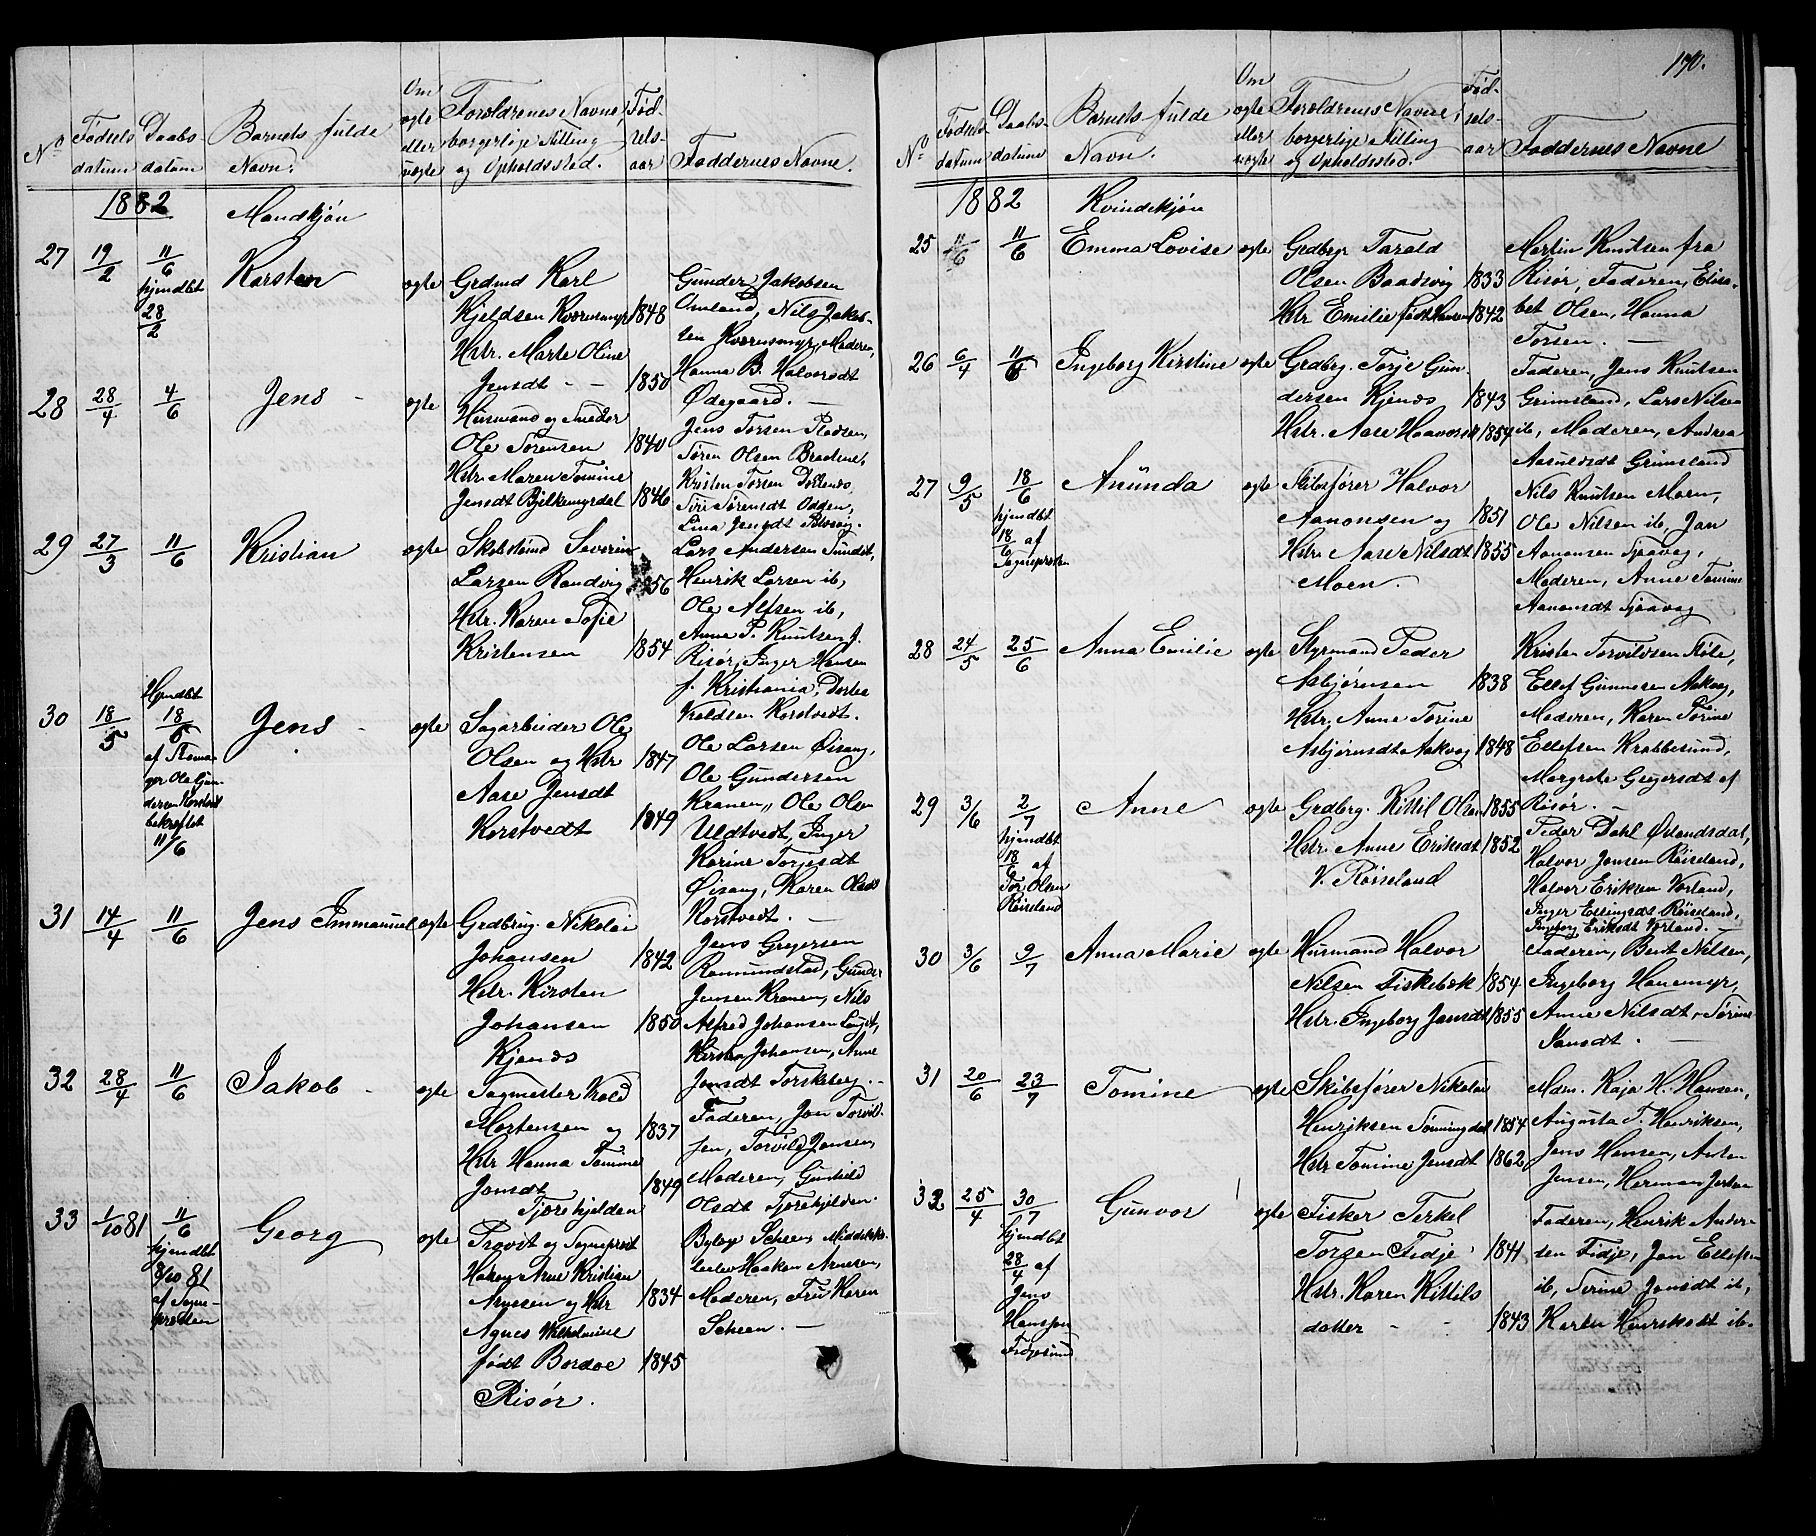 No
Fødsels
datum
Daabs
datum
Barnets fulde
Navn.
Om
ægte
eller
uægte
Forældrenes Navne,
borgerlige Stilling
og Opholdssted.
Fød-
sels-
aar
Faddernes Navne.
1882
Mandkjøn
27
19/2
11/6
hjemdbt
28/2
Karsten
ægte
Grdmd Karl
Kjeldsen Kværnsmyr 1848
Hstr. Marte Oline
Jensdt - - 1850
Gunder Jakobsen
Omland, Nils Jakob-
sen Kværnsmyr, Moderen,
Hanna B. Halvorsdt
Ødegaard. —
28
28/4
4/6
Jens
ægte
Husmand og Smeder
Ole Sørensen 1840
Hstr. Maren Tomine
Jensdt Bjelkemyrdal 1846
Jens Torsen Pladsen,
Søren Olsen
Kristen Torsen
Siri Sørensdt Odden,
Lina Jensdt
29
27/3
11/6
Kristian
ægte
Severin
Larsen Randvig 1856
Hstr. Karen Sofie
Kristensen 1854
Lars Andersen Sundt,
Henrik Larsen ib,
Ole Alfsen ib,
Anne P. Knutsen f.
Risør, Inger Hansen
f. Kristiania, Dorte
Kroldsen Korstvedt.
30
18/5
Hjemdbt
18/5
af
Ole Gun-
dersen Korstvdt
bekræftet
11/6
Jens
ægte
Sagarbeider Ole
Olsen og Hstr 1847
Aase Jensdt
Korstvedt 1849
Ole Larsen Øisang,
Ole Gundersen
Kranen, Ole Olsen
Uldtvedt, Inger
Karine Torjesdt
Øisang, Karen Olsdt
Korstvedt. —
31
14/4
11/6
Jens Immanuel
ægte
Grdbrug. Nikolai
Johansen 1842
Hstr. Kirsten
Johansen 1850
Kjenes
Jens Gregersen
Romundstad, Gunder
Jensen Kranen, Nils
Alfred Johansen
Kirsten Johansen, Anne
Jensdt Torskeberg. —
32
28/4
11/6
Jakob
ægte
Sagmester Krold
Mortensen og 1837
Hstr Hanna Tomine
Jensdt 1849
Tjorehjelden
Faderen, Jon Torvild-
sen, Torvild Jensen,
Moderen, Gunhild
Olsdt Tjorehjelden.
33
1/10 81
11/6
hjemdbt
9/10 81
af Sogne-
presten
Georg
ægte
Provst og Sogneprest
Hakon Arne Kristian
Arnesen og Hstr 1834
Agnes Wilhelmine
født Bordoe 1845
Risør.
Byfog. Scheen, Middelsko-
lelev Haakon Arnesen,
Moderen, Fru Karen
Scheen. —
170.
No
Fødsels
datum
Daabs-
datum
Barnets fulde
Navn.
Om
ægte
eller
uægte
Forældrenes Navne,
borgerlige Stilling
og Opholdssted.
Fød-
sels-
aar
Faddernes Navne
1882
Kvindekjøn
25
11/6
Emma Lovise
ægte
Grdbrgr Tarald
Olsen Baasvig 1833
Hstr Emilie født Hansen 1842
Martin Knutsen fra
Risør, Faderen, Elisa-
bet Olsen, Hanna
Torsen. —
26
6/4
11/6
Ingeborg Kirstine
ægte
Grdbrg. Torje Gun-
dersen Kjenes 1843
Hstr. Aase Haavorsdt 1854
Faderen, Jens Knutsen
Grimsland, Lars Nilsen
ib, Moderen, Andrea
Aasulvsdt Grimsland
27
9/5
18/6
hjemdbt
18/6 af
Sognepresten
Anunda
ægte
Skibsfører Halvor
Aanonsen og 1851
Hstr Aase Nilsdt 1855
Moen
Nils Knutsen Moen,
Ole Nilsen ib, Jan
Aanonsen Sjaavag,
Moderen, Anne Tomine
Aanonsdt Sjaavag
28
24/5
25/6
Anna Emilie
ægte
Styrmand Peder
Asbjørnsen 1838
Hstr. Anne Torine
Asbjørnsdt Aakvag 1848
Kristen Torvildsen
Ellef Gunnesen Aakvag,
Moderen, Karen Torine
Ellefsen Krabbesund,
Margrete Gregersdt af
Risør. —
29
3/6
2/7
hjemdbt
18/6 af
Tor Olsen
Røiseland
Anne
ægte
Grdbrg. Kittil Olsen 1855
Hstr. Anne Eriksdt 1852
V. Røiseland
Peder Dahl Ørlandsdal,
Halvor Jensen Røiseland,
Halvor Eriksen Vorland,
Inger Ellingsdt Røiseland,
Ingeborg Eriksdt Vorland. —
30
3/6
9/7
Anna Marie
ægte
Husmand Halvor
Nilsen Fiskebæk 1854
Hstr. Ingeborg Jansdt 1855
Faderen, Bent Nilsen,
Ingeborg Hanemyr,
Anne Nilsdt, Torine
Jansdt. —
31
20/6
23/7
Tomine
ægte
Skibsfører Nikolai
Henriksen Sønningdal 1854
Hstr Tomine Jensdt 1862
Mdm. Kaja H. Hansen,
Augusta T. Henriksen,
Jens Hansen, Anton
Jensen, Herman
32
25/4
30/7
Hjemdbt
28/4 af
Jens
Hansen
Frøysund
Gunvor
ægte
Fisker Terkel
Torsen Fidje 1841
Hstr. Karen Kittils
datter - - 1843
Faderen, Henrik Ander-
sen Fidje, Jon Ellefsen
ib, Terine Jensdt ib,
Karen Henriksdt ib.